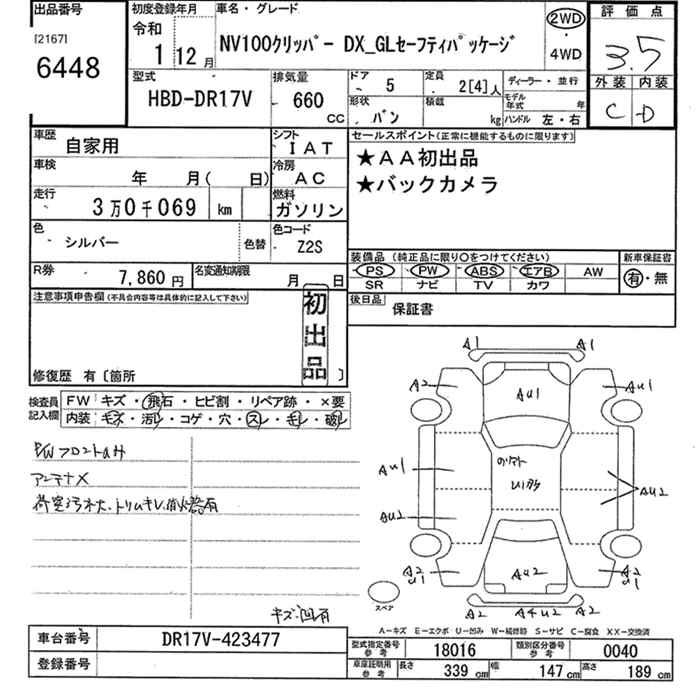 出品番号
[2167]
6448
初度登録年月
令和
1 12月
車名・グレード
NV100クリッパー DX_GLセーフティパッケージ
2WD
・
4WD
評価点
3.5
外装 内装
C D
型式
HBD-DR17V
排気量
660
CC
ドア
5
形状
バン
定員
2[4]人
積載
kg
ディーラー・並行
モデル年式 年
ハンドル 左・右
車歴
自家用
シフト
IAT
車検
年 月( 日)
冷房
AC
走行
3万0千069 km
燃料
ガソリン
色
シルバー
色替
色コード
Z2S
R券
7,860円
名変通知期限
月 日
セールスポイント(正常に機能するものに限ります)
★AA初出品
★バックカメラ
装備品 (純正品に限り○をつけてください)
PS PW ABS エアB AW
SR ナビ TV カワ
新車保証書
有・無
後日品
保証書
注意事項申告欄(不具合内容等は具体的に記入して下さい)
初出品
修復歴 有〔箇所 〕
検査員記入欄
FW キズ・飛石・ヒビ割・リペア跡・×要
内装 キズ・汚レ・コゲ・穴・スレ・モレ・破レ
P/Wフロントのみ
アンテナX
荷室汚れ大.トリムキレ.消火器有
キズ.凹有
A1 A1
A2 AU1 AU1
のりマト
U1多
AU1
AU2
AU2
A2
U1
AU2
A2
U1
A2 A4U2 A2
スペア
A-キズ E-エクボ U-凹み W-補修跡 S-サビ C-腐食 XX-交換済
車台番号
DR17V-423477
登録番号
型式指定番号参考
18016
類別区分番号参考
0040
車庫証明用参考
長さ 339 cm 幅 147 cm 高さ 189 cm